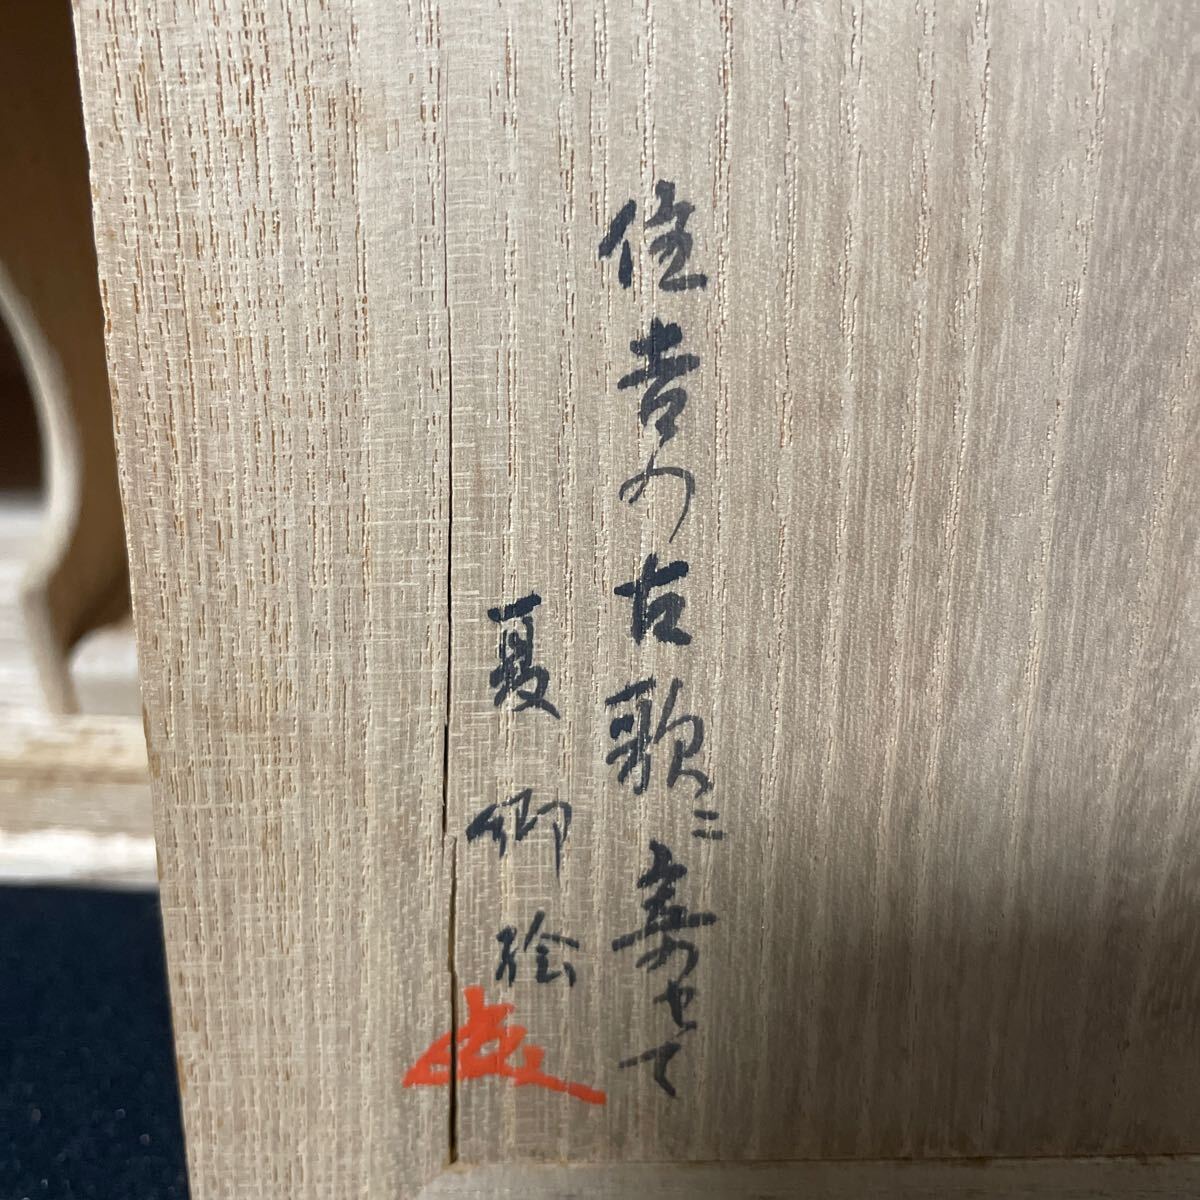 住吉の古歌ニ寄せて
夏郷絵